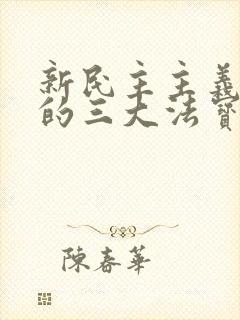 新民主主義
的三大法寶
陳春華